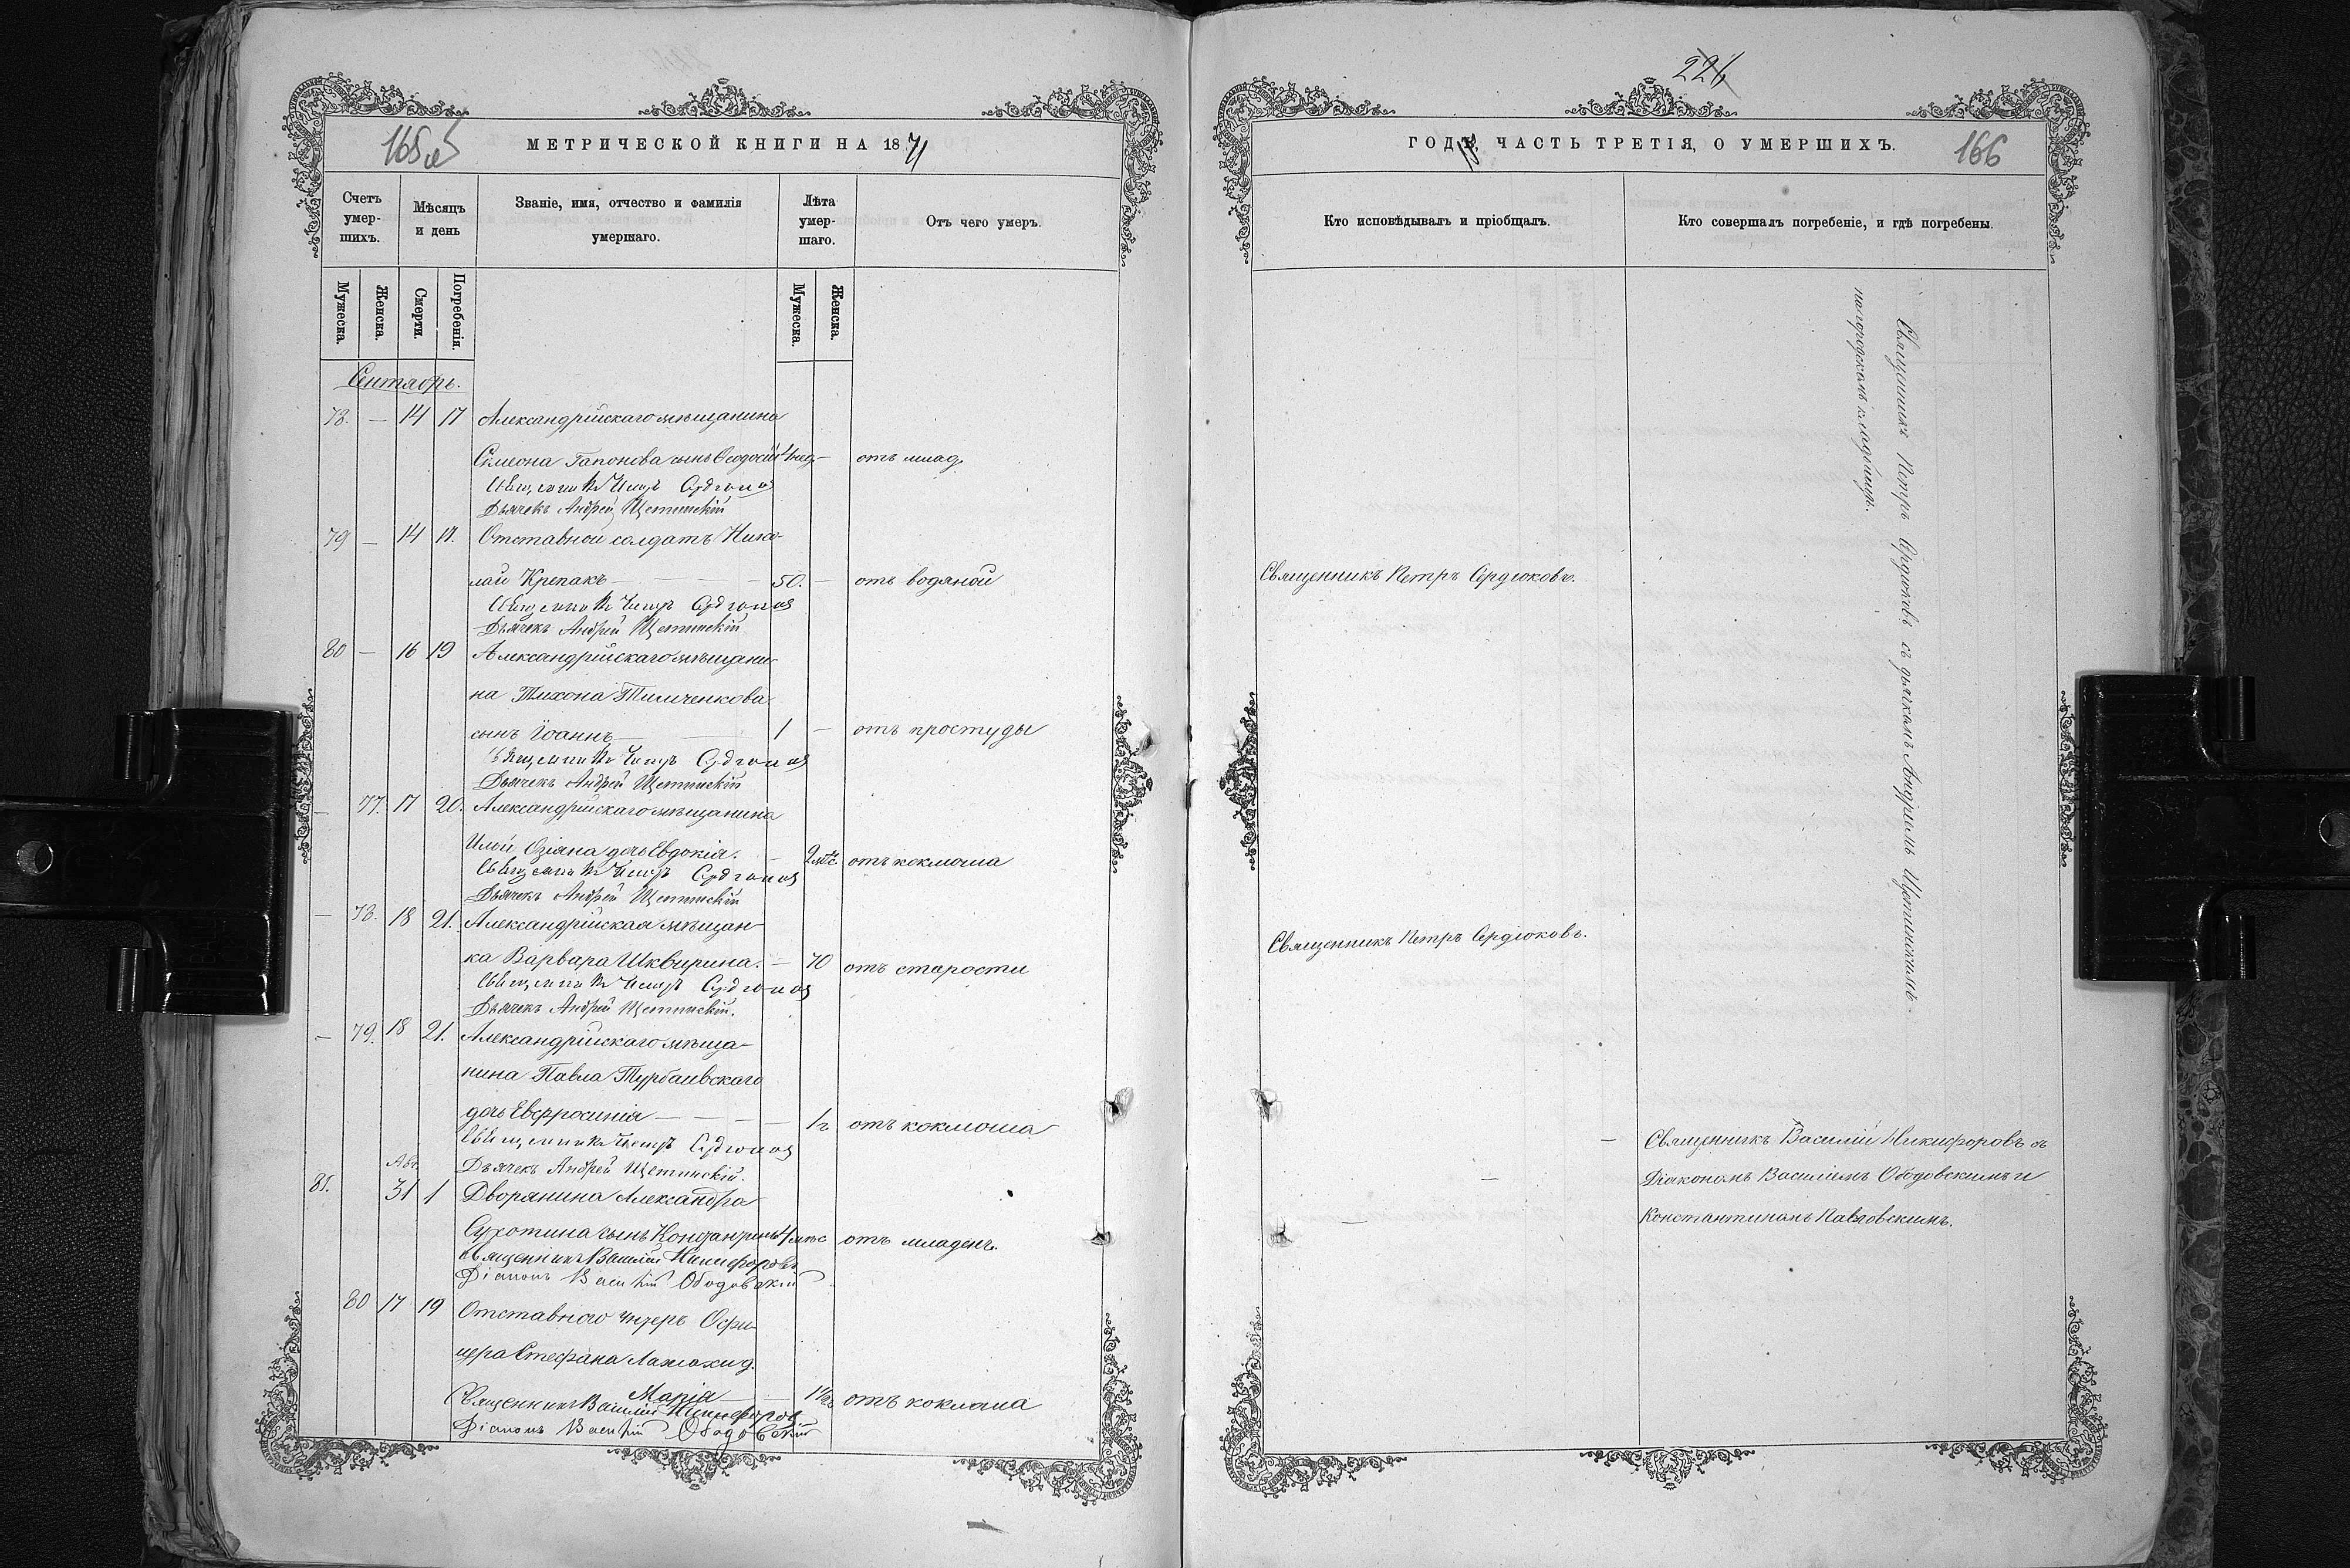 165 об
МЕТРИЧЕСКОЙ КНИГИ НА 1871
Счетъ умер-шихъ.
Мѣсяцъ и день
Званіе, имя, отчество и фамилія умершаго.
Лѣта умер-шаго.
Отъ чего умеръ.
Мужеска. Женска. Смерти. Погребенія. Мужеска. Женска.
Сентябрь.
78. — 14 17 Александрійскаго мѣщанина
Симеона Гапонова сынъ Ѳеодосій — отъ млад.
Священникъ Петръ Сердюковъ
Дьячекъ Андрей Щетинскій
79 — 14 17. Отставной солдатъ Нико-
лай Крепакъ — 50. — отъ водяной
Священникъ Петръ Сердюковъ
Дьячекъ Андрей Щетинскій
80 — 16 19 Александрійскаго мѣщани-
на Тихона Тимченкова
сынъ Іоаннъ — 1 — отъ простуды
Священникъ Петръ Сердюковъ
Дьячекъ Андрей Щетинскій
— 77. 17 20. Александрійскаго мѣщанина
дочь Евдокія. — 2 мѣс отъ коклюша
Священникъ Петръ Сердюковъ
Дьячекъ Андрей Щетинскій
— 78. 18 21. Александрійская мѣщан-
ка Варвара Шквирина. — 70 отъ старости
Священникъ Петръ Сердюковъ
Дьячекъ Андрей Щетинскій.
— 79. 18 21. Александрійскаго мѣща-
нина Павла Турбаевскаго
дочь Евфросинія — — — отъ коклюша
Священникъ Петръ Сердюковъ
Дьячекъ Андрей Щетинскій.
Авг.
81. 31 1 Дворянина Александра
Сухотина сынъ отъ младенч.
Священникъ Василій Никифоровъ
Діаконъ Василій Ободовскій
80 17 19 Отставного унтеръ Офи-
цера Стефана
Марія — — отъ коклюша
Священникъ Василій Никифоровъ
Діаконъ Василій Ободовскій
226
ГОДЪ, ЧАСТЬ ТРЕТІЯ, О УМЕРШИХЪ.
166
Кто исповѣдывалъ и пріобщалъ.
Кто совершалъ погребеніе, и гдѣ погребены.
Священникъ Петръ Сердюковъ съ дьячкомъ Андреемъ Щетинскимъ
на городскомъ кладбищѣ.
Священникъ Петръ Сердюковъ.
Священникъ Петръ Сердюковъ.
— Священникъ Василій Никифоровъ съ
— Діакономъ Василіемъ Ободовскимъ и
— Константиномъ Павловскимъ.